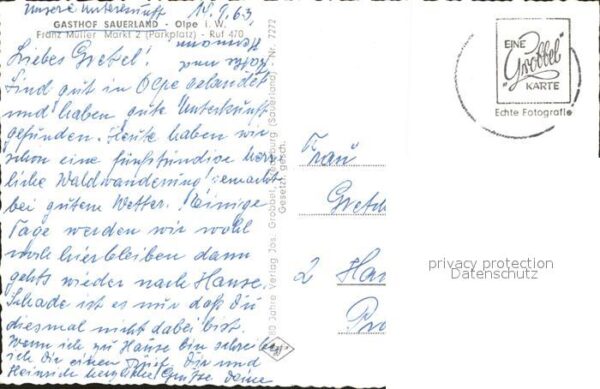 Unsere Unterkunft 14.9.63,
GASTHOF SAUERLAND - Olpe i. W.
Franz Müller Markt 2 (Parkplatz) - Ruf 470
Liebes Gretel!
Sind gut in Olpe gelandet
und haben gute Unterkunft
gefunden. Heute haben wir
schon eine fünfstündige herr
liche Waldwanderung gemacht
bei gutem Wetter. Einige
Tage werden wir wohl
noch hierbleiben dann
gehts wieder nach Hause.
Schade ist es nur daß Du
diesmal nicht dabei bist.
Wenn ich zu Hause bin schrei
ich Dir einen Brief. Dir und
Heinrich herzliche Grüße Deine
80 Jahre Verlag Jos. Grobbel, (Sauerland) - Nr. 7272
Gesetzl. gesch.
EINE
"Grobbel"
KARTE
Echte Fotografie
Frau
Gretch
2 Ham
privacy protection
Datenschutz